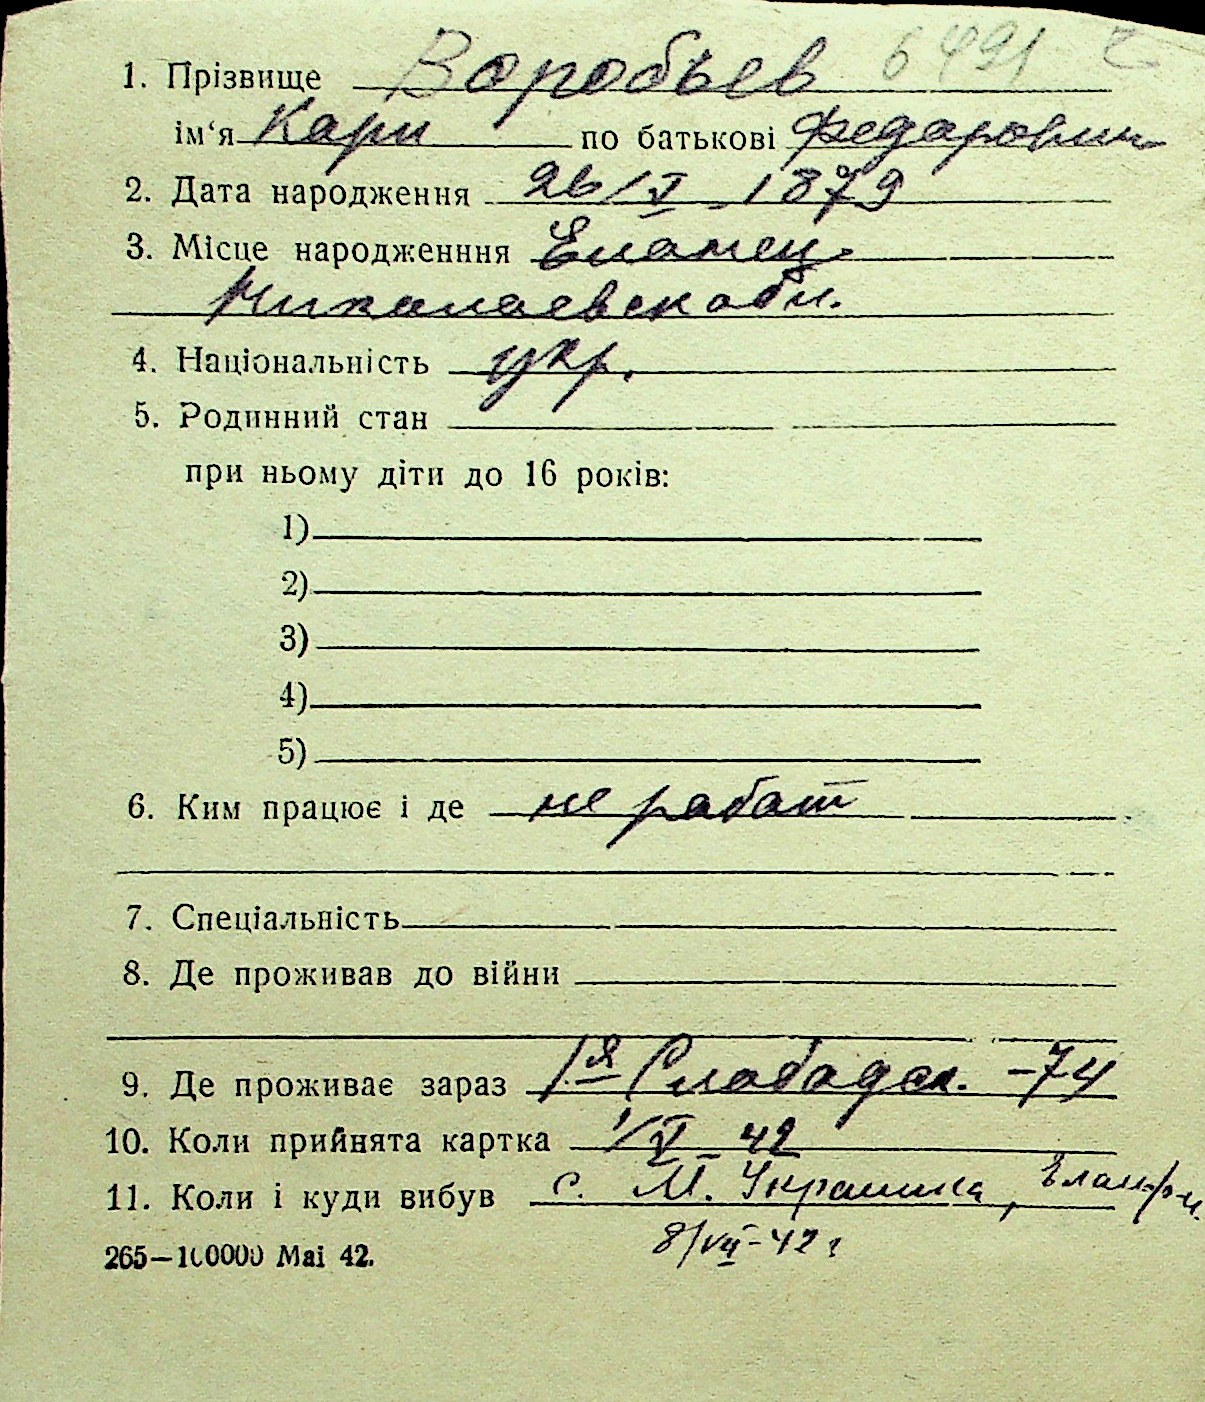 1. Прізвище Воробьев 6491
ім‘я Карп по батькові Федарович
2. Дата народження 26/V - 1879
3. Місце народженння Еланец
Николаевск обл.
4. Національність укр.
5. Родинний стан
при ньому діти до 16 років:
1)
2)
3)
4)
5)
6. Ким працює і де не работ
7. Спеціальність
8. Де проживав до війни
9. Де проживає зараз 1я Слабодск. -74
10. Коли прийнята картка 1/V - 42
11. Коли і куди вибув с. М. Украинка, Елан. р-н.
265—100000 Mai 42. 8/VII-42 г